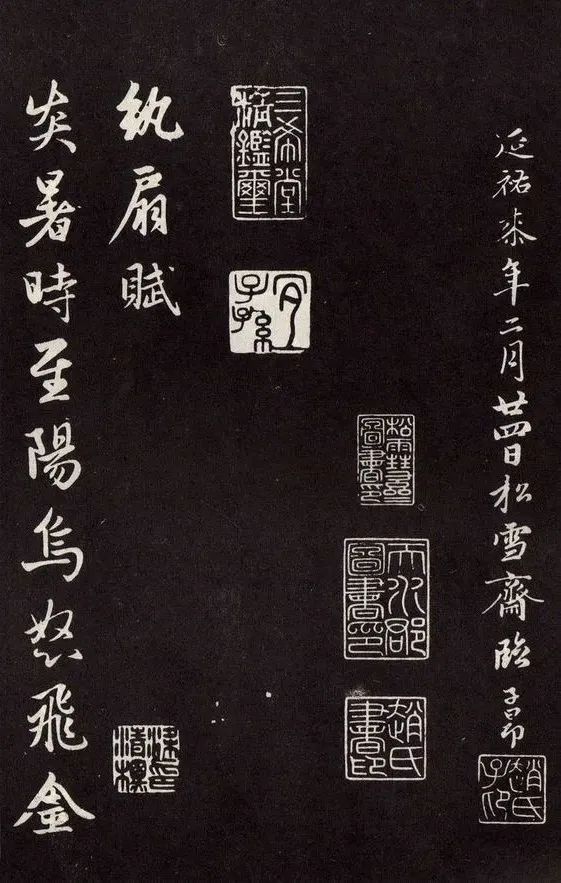 延祐柒年二月廿四日松雪齋臨子昂
趙氏子昂
松雪齋圖書印
天水郡圖書印
趙氏書印
三希堂精鑑璽
宜子孫
紈扇賦
梁清標印
炎暑時至陽烏怒飛金